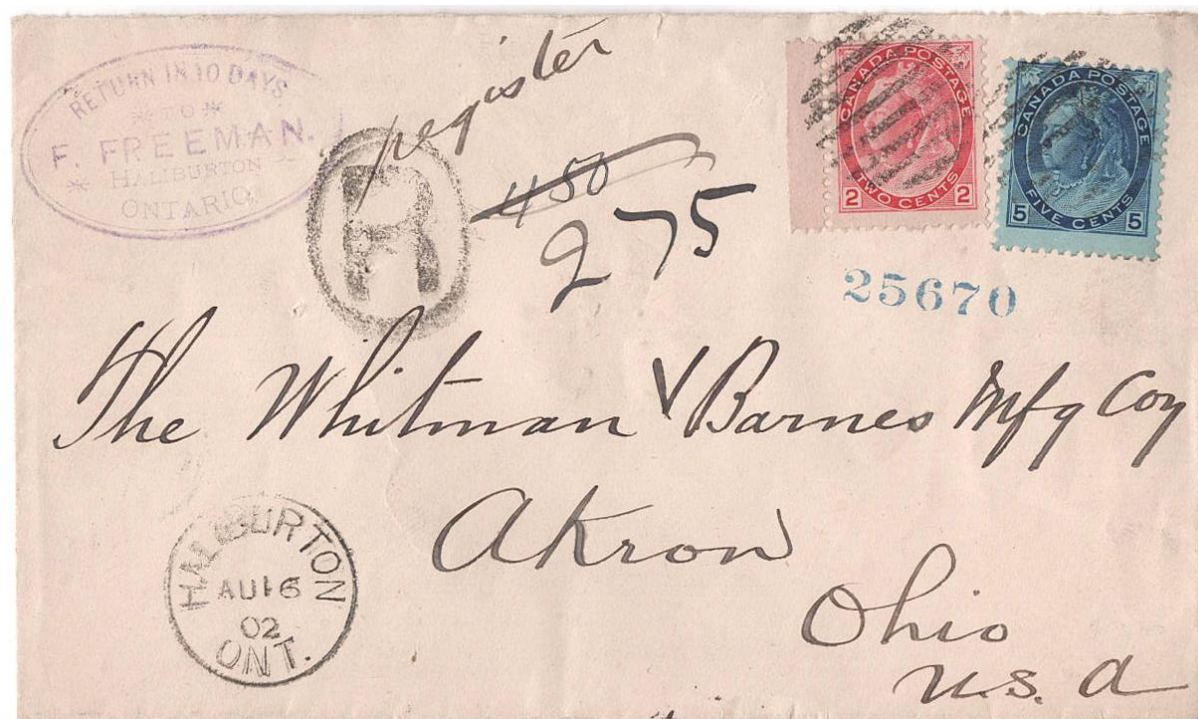 RETURN IN 10 DAYS
* TO *
F. FREEMAN.
* HALIBURTON *
ONTARIO
register
R
450
275
CANADA POSTAGE
2 2
TWO CENTS
CANADA POSTAGE
5 5
FIVE CENTS
25670
The Whitman & Barnes Mfg Coy
Akron
Ohio
U.S.A
HALIBURTON
AU 16
02
ONT.